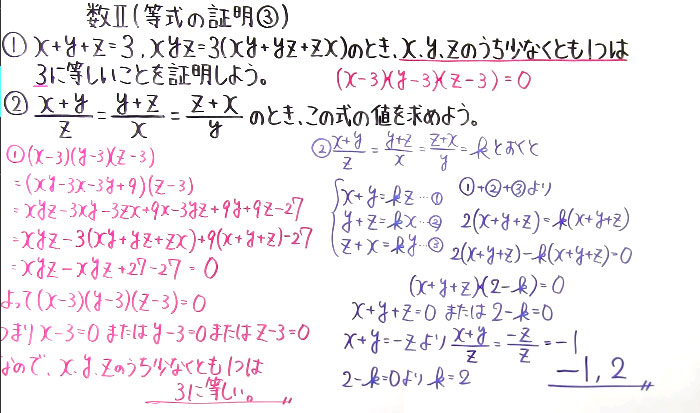 数Ⅱ(等式の証明③)
① x+y+z=3, xyz=3(xy+yz+zx)のとき、x.y.zのうち少なくとも1つは
3に等しいことを証明しよう。 (x-3)(y-3)(z-3)=0
② (x+y)/z = (y+z)/x = (z+x)/y のとき、この式の値を求めよう。
①(x-3)(y-3)(z-3)
=(xy-3x-3y+9)(z-3)
=xyz-3xy-3zx+9x-3yz+9y+9z-27
=xyz-3(xy+yz+zx)+9(x+y+z)-27
=xyz-xyz+27-27=0
よって(x-3)(y-3)(z-3)=0
つまりx-3=0またはy-3=0またはz-3=0
なので、x.y.zのうち少なくとも1つは
3に等しい。〃
②(x+y)/z=(y+z)/x=(z+x)/y=kとおくと
x+y=kz…①
y+z=kx…②
z+x=ky…③
①+②+③より
2(x+y+z)=k(x+y+z)
2(x+y+z)-k(x+y+z)=0
(x+y+z)(2-k)=0
x+y+z=0 または 2-k=0
x+y=-zより (x+y)/z=-z/z=-1
2-k=0よりk=2
-1, 2〃